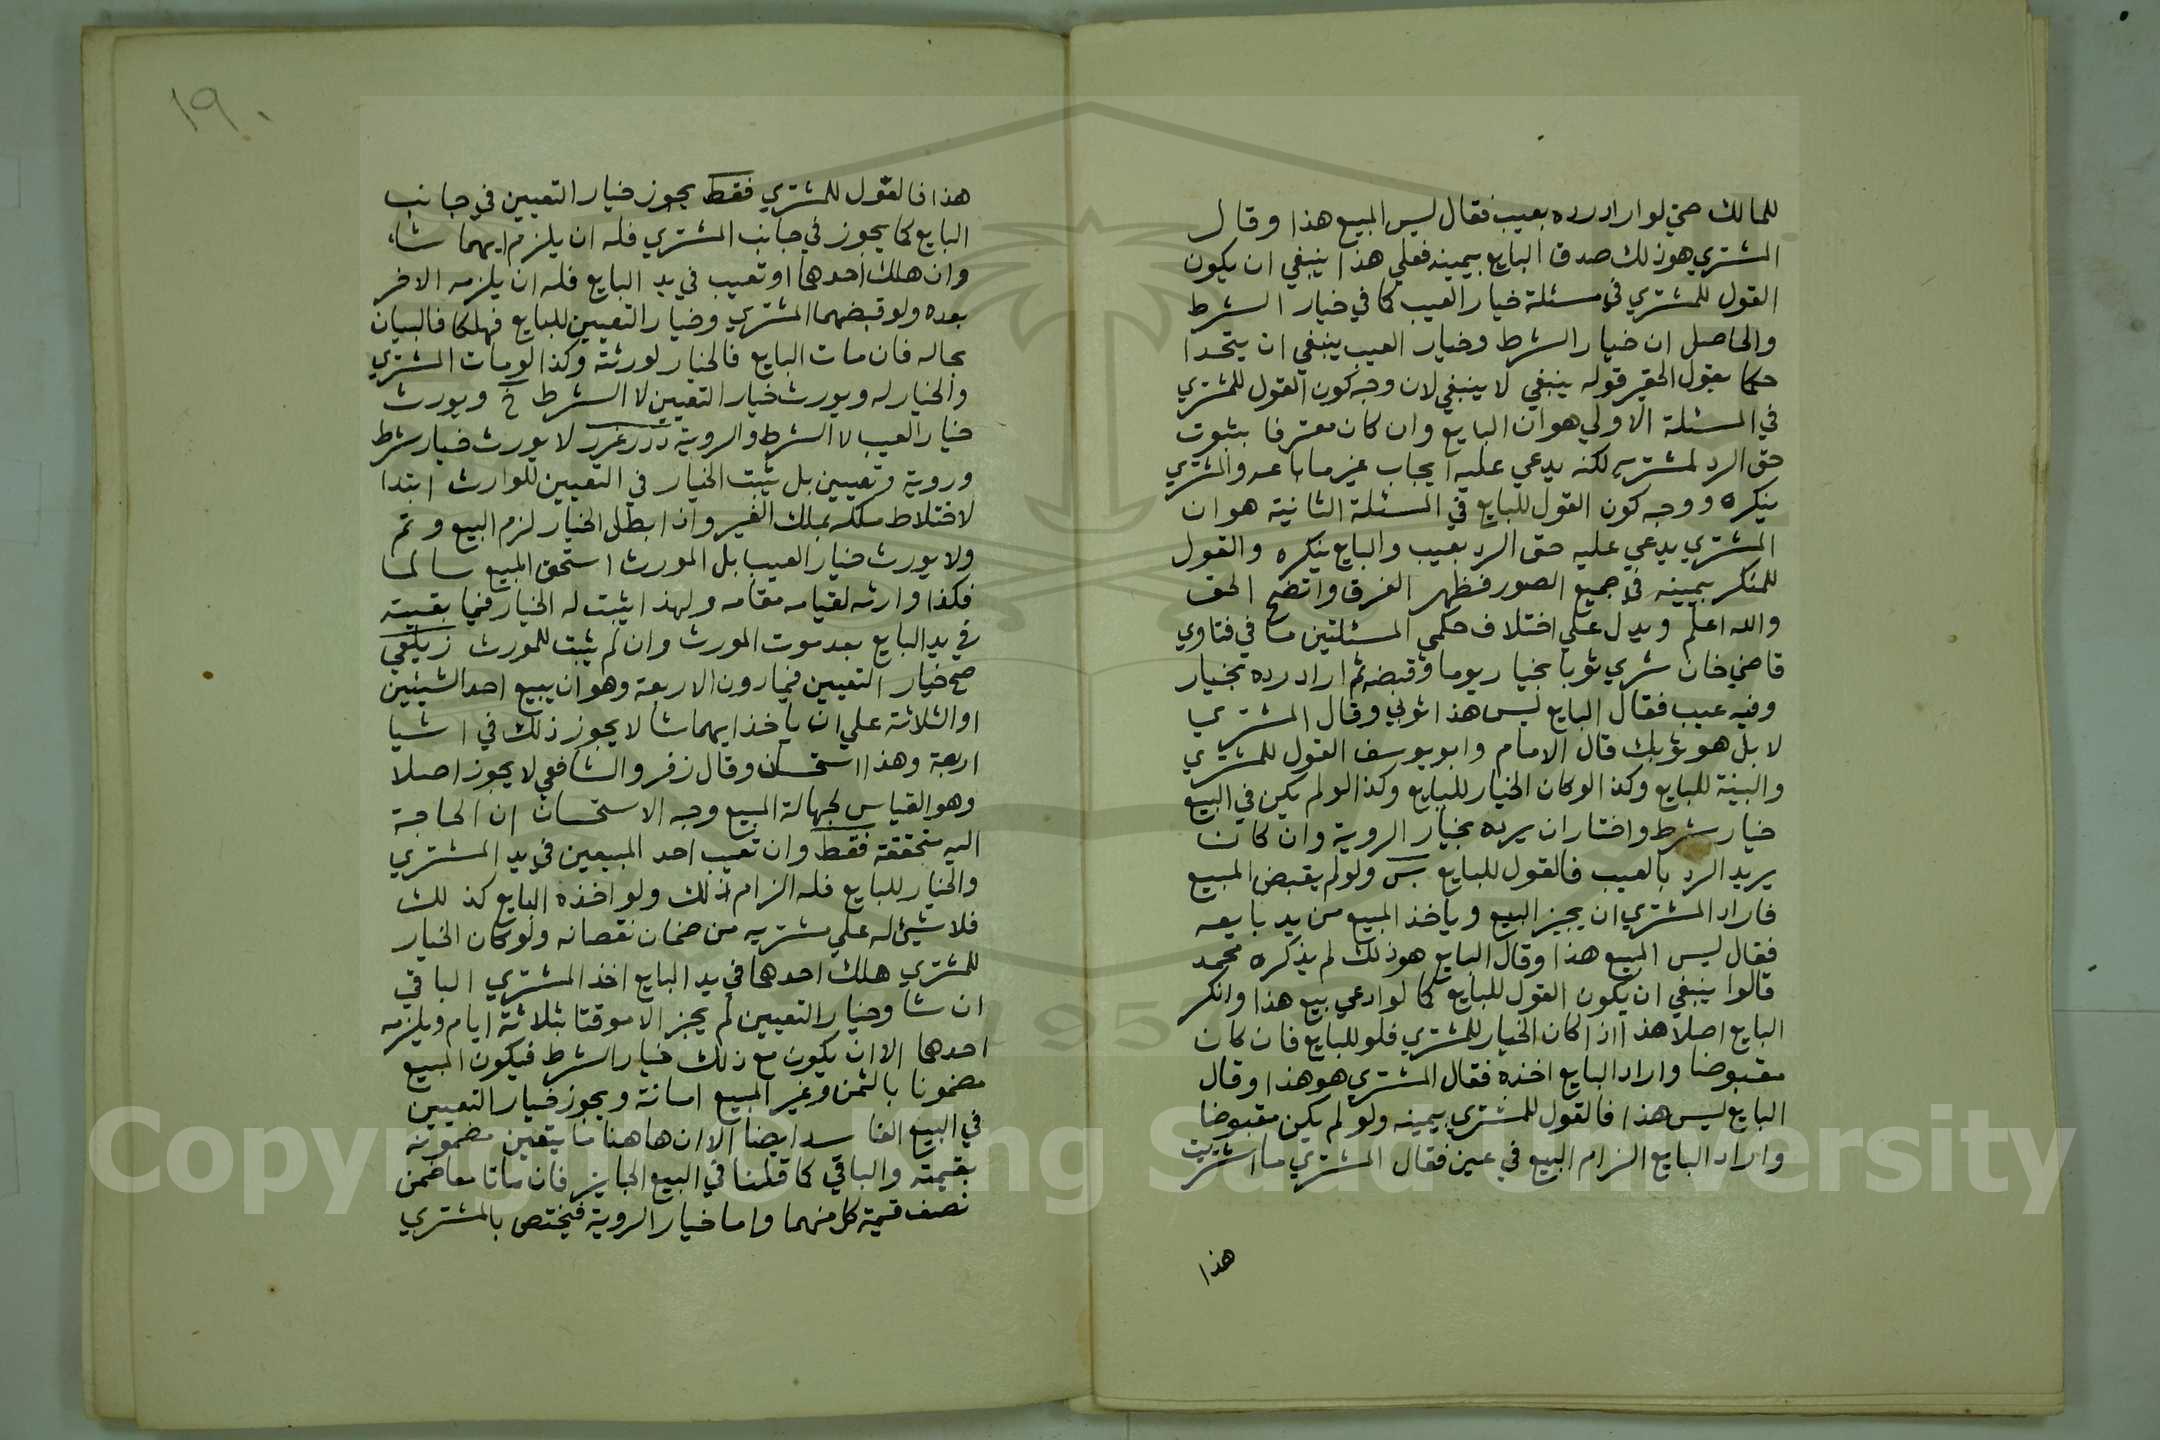 للمالك حتي لو اراد رده بعيب فقال ليس المبيع هذا وقال
المشتري هو ذلك صدق البايع بيمينه فعلي هذا ينبغي ان يكون
القول للمشتري في مسئلة خيار العيب كما في خيار الشرط
والحاصل ان خيار الشرط وخيار العيب ينبغي ان يتحدا
حكما يقول الحقير قوله ينبغي لا ينبغي لان وجه كون القول للمشتري
في المسئلة الاولي هو ان البايع وان كان معترفا بثبوت
حق الرد لمشتريه لكنه يدعي عليه ايجاب غير ما باعه والمشتري
ينكره ووجه كون القول للبايع في المسئلة الثانية هو ان
المشتري يدعي عليه حق الرد بعيب والبايع ينكره والقول
للمنكر بيمينه في جميع الصور فظهر الفرق واتضح الحق
والله اعلم ويدل علي اختلاف حكمي المسئلتين ما في فتاوي
قاضي خان شري ثوبا بخيار يوما وقبضه ثم اراد رده بخيار
وفيه عيب فقال البايع ليس هذا ثوبي وقال المشتري
لا بل هو ثوبك قال الامام وابو يوسف القول للمشتري
والبينة للبايع وكذا لو كان الخيار للبايع وكذا لو لم يكن في البيع
خيار شرط واختار ان يرده بخيار الروية وان كان
يريد الرد بالعيب فالقول للبايع بس ولو لم يقبض المبيع
فاراد المشتري ان يجيز البيع وياخذ المبيع من يد بايعه
فقال ليس المبيع هذا وقال البايع هو ذلك لم يذكره محمد
قالوا ينبغي ان يكون القول للبايع كما لو ادعي بيع هذا وانكر
البايع اصلا هذا اذا كان الخيار للمشتري فلو للبايع فان كان
مقبوضا واراد البايع اخذه فقال المشتري هو هذا وقال
البايع ليس هذا فالقول للمشتري بيمينه ولو لم يكن مقبوضا
واراد البايع الزام البيع في عين فقال المشتري ما اشتريت
هذا
١٩٠
هذا فالقول للمشتري فقط يجوز خيار التعيين في جانب
البايع كما يجوز في جانب المشتري فله ان يلزم ايهما شاء
وان هلك احدهما او تعيب في يد البايع فله ان يلزمه الاخر
بعده ولو قبضهما المشتري وخيار التعيين للبايع فهلكا فالبيان
بحاله فان مات البايع فالخيار لورثته وكذا لو مات المشتري
والخيار له ويورث خيار التعيين لا الشرط خ ويورث
خيار العيب لا الشرط والروية درر غرر لا يورث خيار شرط
وروية وتعيين بل يثبت الخيار في التعيين للوارث ابتدا
لاختلاط ملكه بملك الغير وان ابطل الخيار لزم البيع وتم
ولا يورث خيار العيب بل المورث استحق المبيع سالما
فكذا وارثه لقيامه مقامه ولهذا يثبت له الخيار فيما بقيته
في يد البايع بعد موت المورث وان لم يثبت للمورث زيلعي
صح خيار التعيين فيما دون الاربعة وهو ان يبيع احد الشيئين
او الثلاثة علي ان ياخذ ايهما شا لا يجوز ذلك في اشيا
اربعة وهذا استحسان وقال زفر والشافعي لا يجوز اصلا
وهو القياس لجهالة المبيع وجه الاستحسان ان الحاجة
اليه متحققة فقط وان تعيب احد المبيعين في يد المشتري
والخيار للبايع فله الزام ذلك ولو اخذه البايع كذلك
فلا شيئ له علي مشتريه من ضمان نقصانه ولو كان الخيار
للمشتري هلك احدهما في يد البايع اخذ المشتري الباقي
ان شا وخيار التعيين لم يجز الا موقتا بثلاثة ايام ويلزمه
احدهما الا ان يكون مع ذلك خيار الشرط فيكون المبيع
مضمونا بالثمن وغير المبيع امانة ويجوز خيار التعيين
في البيع الفاسد ايضا الا ان هاهنا ما يتعين مضمونه
بقيمته والباقي كما قلنا في البيع الجايز فان ماتا معا ضمن
نصف قيمة كل منهما واما خيار الروية فيختص بالمشتري
1957
Copyright © King Saud University